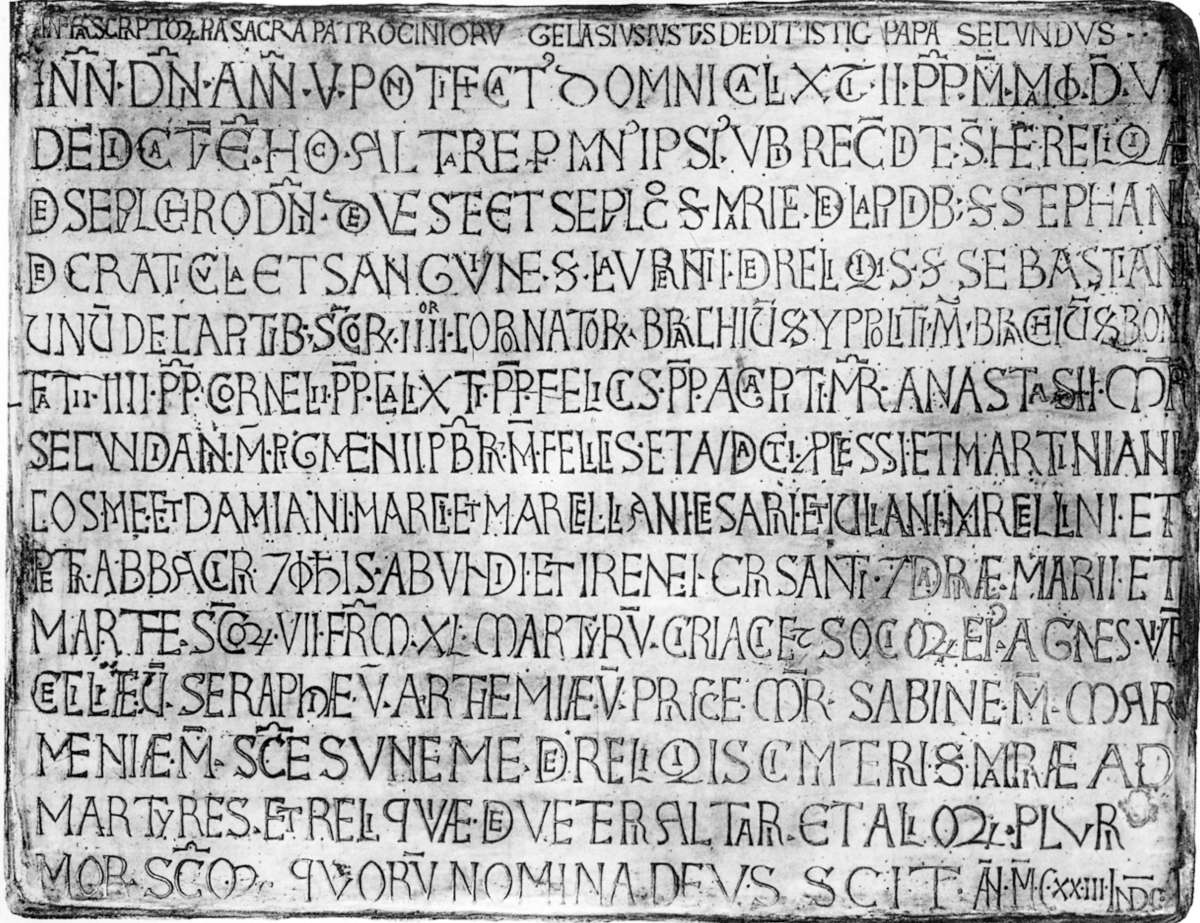 SCRIPTOR HA SACRA PATROCINIORV GELASIVS IVSTVS DEDIT ISTIC PAPA SECVNDVS
INN·DNI·ANN·V·PONTIFICAT' DOMNI CALIXTI·II·PP·M·
DEDICAT E·HOC·ALTARE P MAN' IPSI' VBI RECDITE·S·HE·RELIQIA
DE SEPVLCHRO DNI·DE VESTE ET SEPLC S MARIE·DE LAPIDB; S STEPHANI
DE CRATICVLA ET SANGVINE·S·LAVRENTII·DE RELIQIIS·S SEBASTIAN
UNU DE CAPITIB·SCOR IIIIOR·CORONATOR BRACHIU S YPPOLITI·M·BRACHIU S BON
FATII IIII·PP·CORNELII·PP·CALIXTI·PP·FELICIS·PP·AGAPITI·MR·ANASTASII·MR
SECVNDIANI·M·PIGMENII PBR·M·FELICIS·ET AVDACTI PLESSI·ET MARTINIANI
COSME·ET DAMIANI·MARCI·ET MARCELLIANI·CESARII·ET IULIANI·MARCELLINI·ET
PETRI·ABBACIRI·7 IOHIS·ABVNDI·ET IRENEI·CRISANTI·7 DARIÆ·MARII·ET
MARTHE·SCOR VII·FRM·XL MARTYRV·CIRIACI ET SOCIOR EI' AGNES·V
CECILIÆ U·SERAPHIÆ·V·ARTHEMIÆ·V·PRISCE MR·SABINE·M·MAR
MENIÆ·M·SCE SVNEME·DE RELIQIIS CIMITERII·S·MARIÆ AD
MARTYRES·ET RELIQVÆ·DE VETERI ALTARI·ET ALIOR·PLVRI
MOR·SCOR QVORV NOMINA DEVS SCIT AN·M·CXXIII INDC